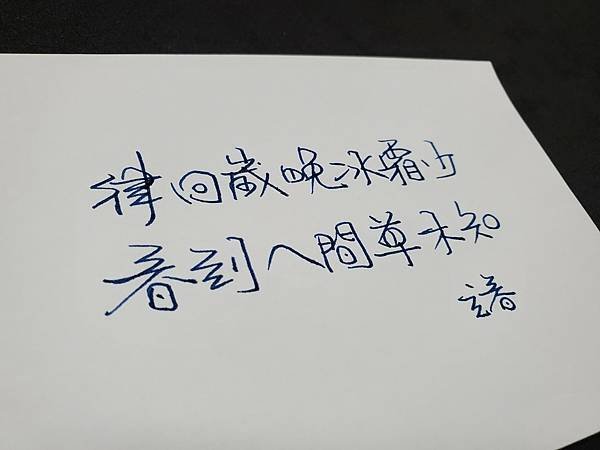 律回歲晚冰霜少
春到人間草木知
立春